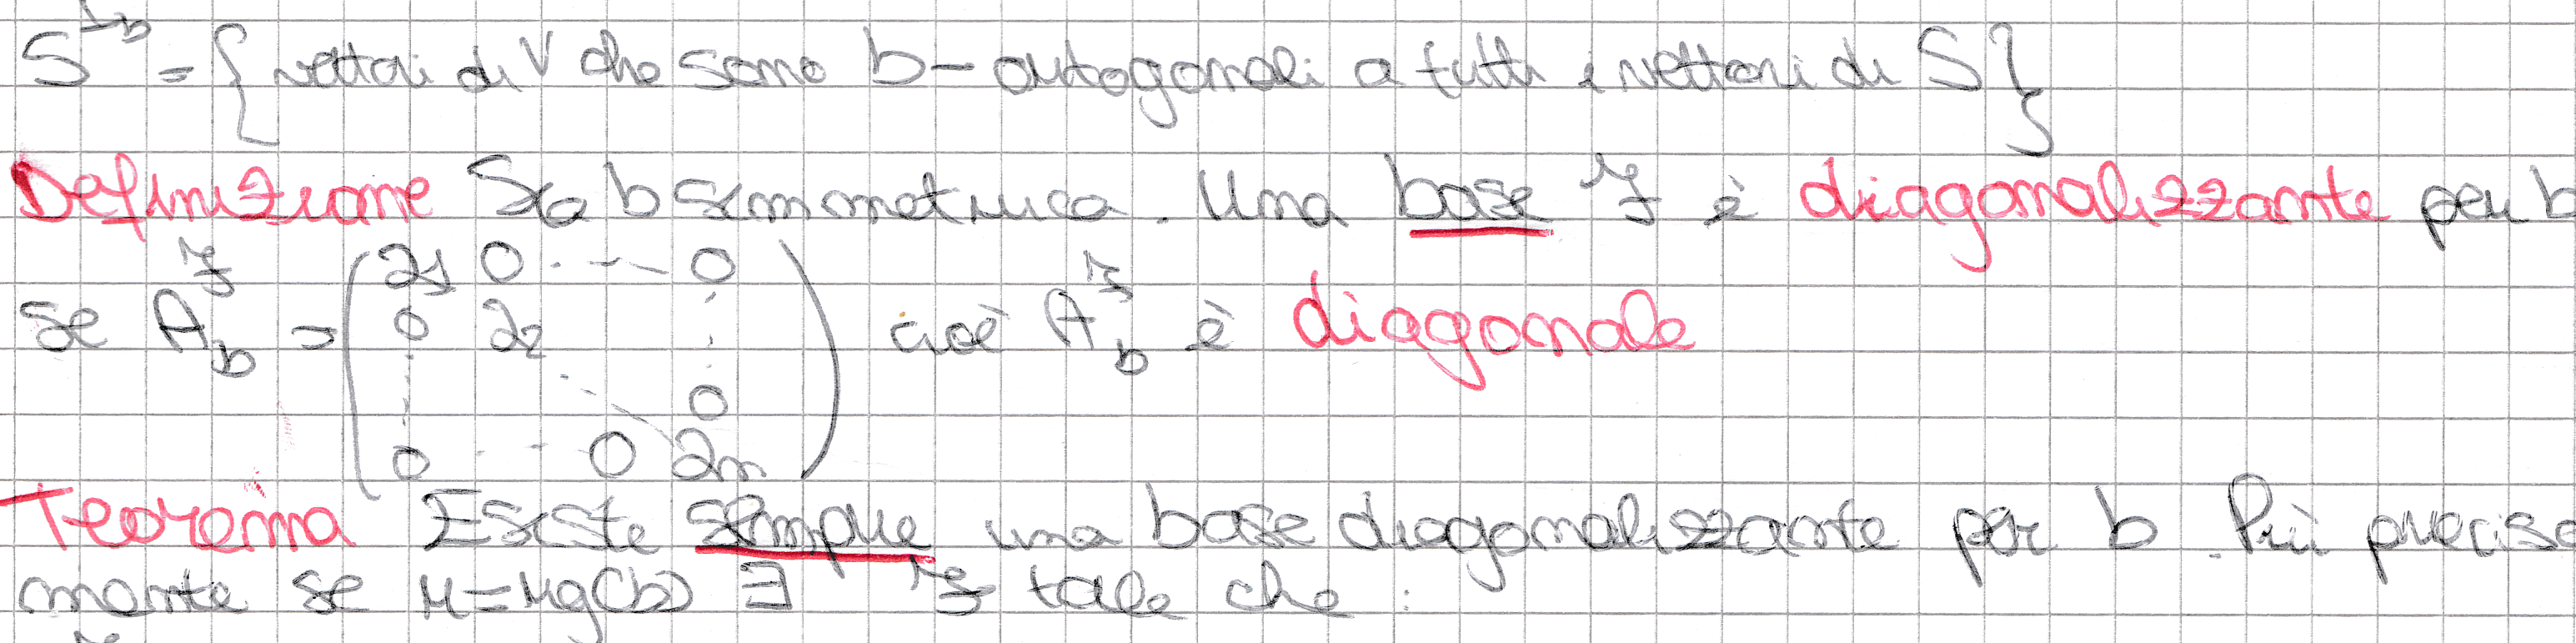 S^⊥b = { vettori di V che sono b-ortogonali a tutti i vettori di S }
Definizione Sia b simmetrica. Una base F è diagonalizzante per b
se A_b^F = ( λ1 0 ... 0
0 λ2
0
0 ... 0 λn ) cioè A_b^F è diagonale
Teorema Esiste sempre una base diagonalizzante per b. Più precisa
mente se r=rg(b) ∃ F tale che: